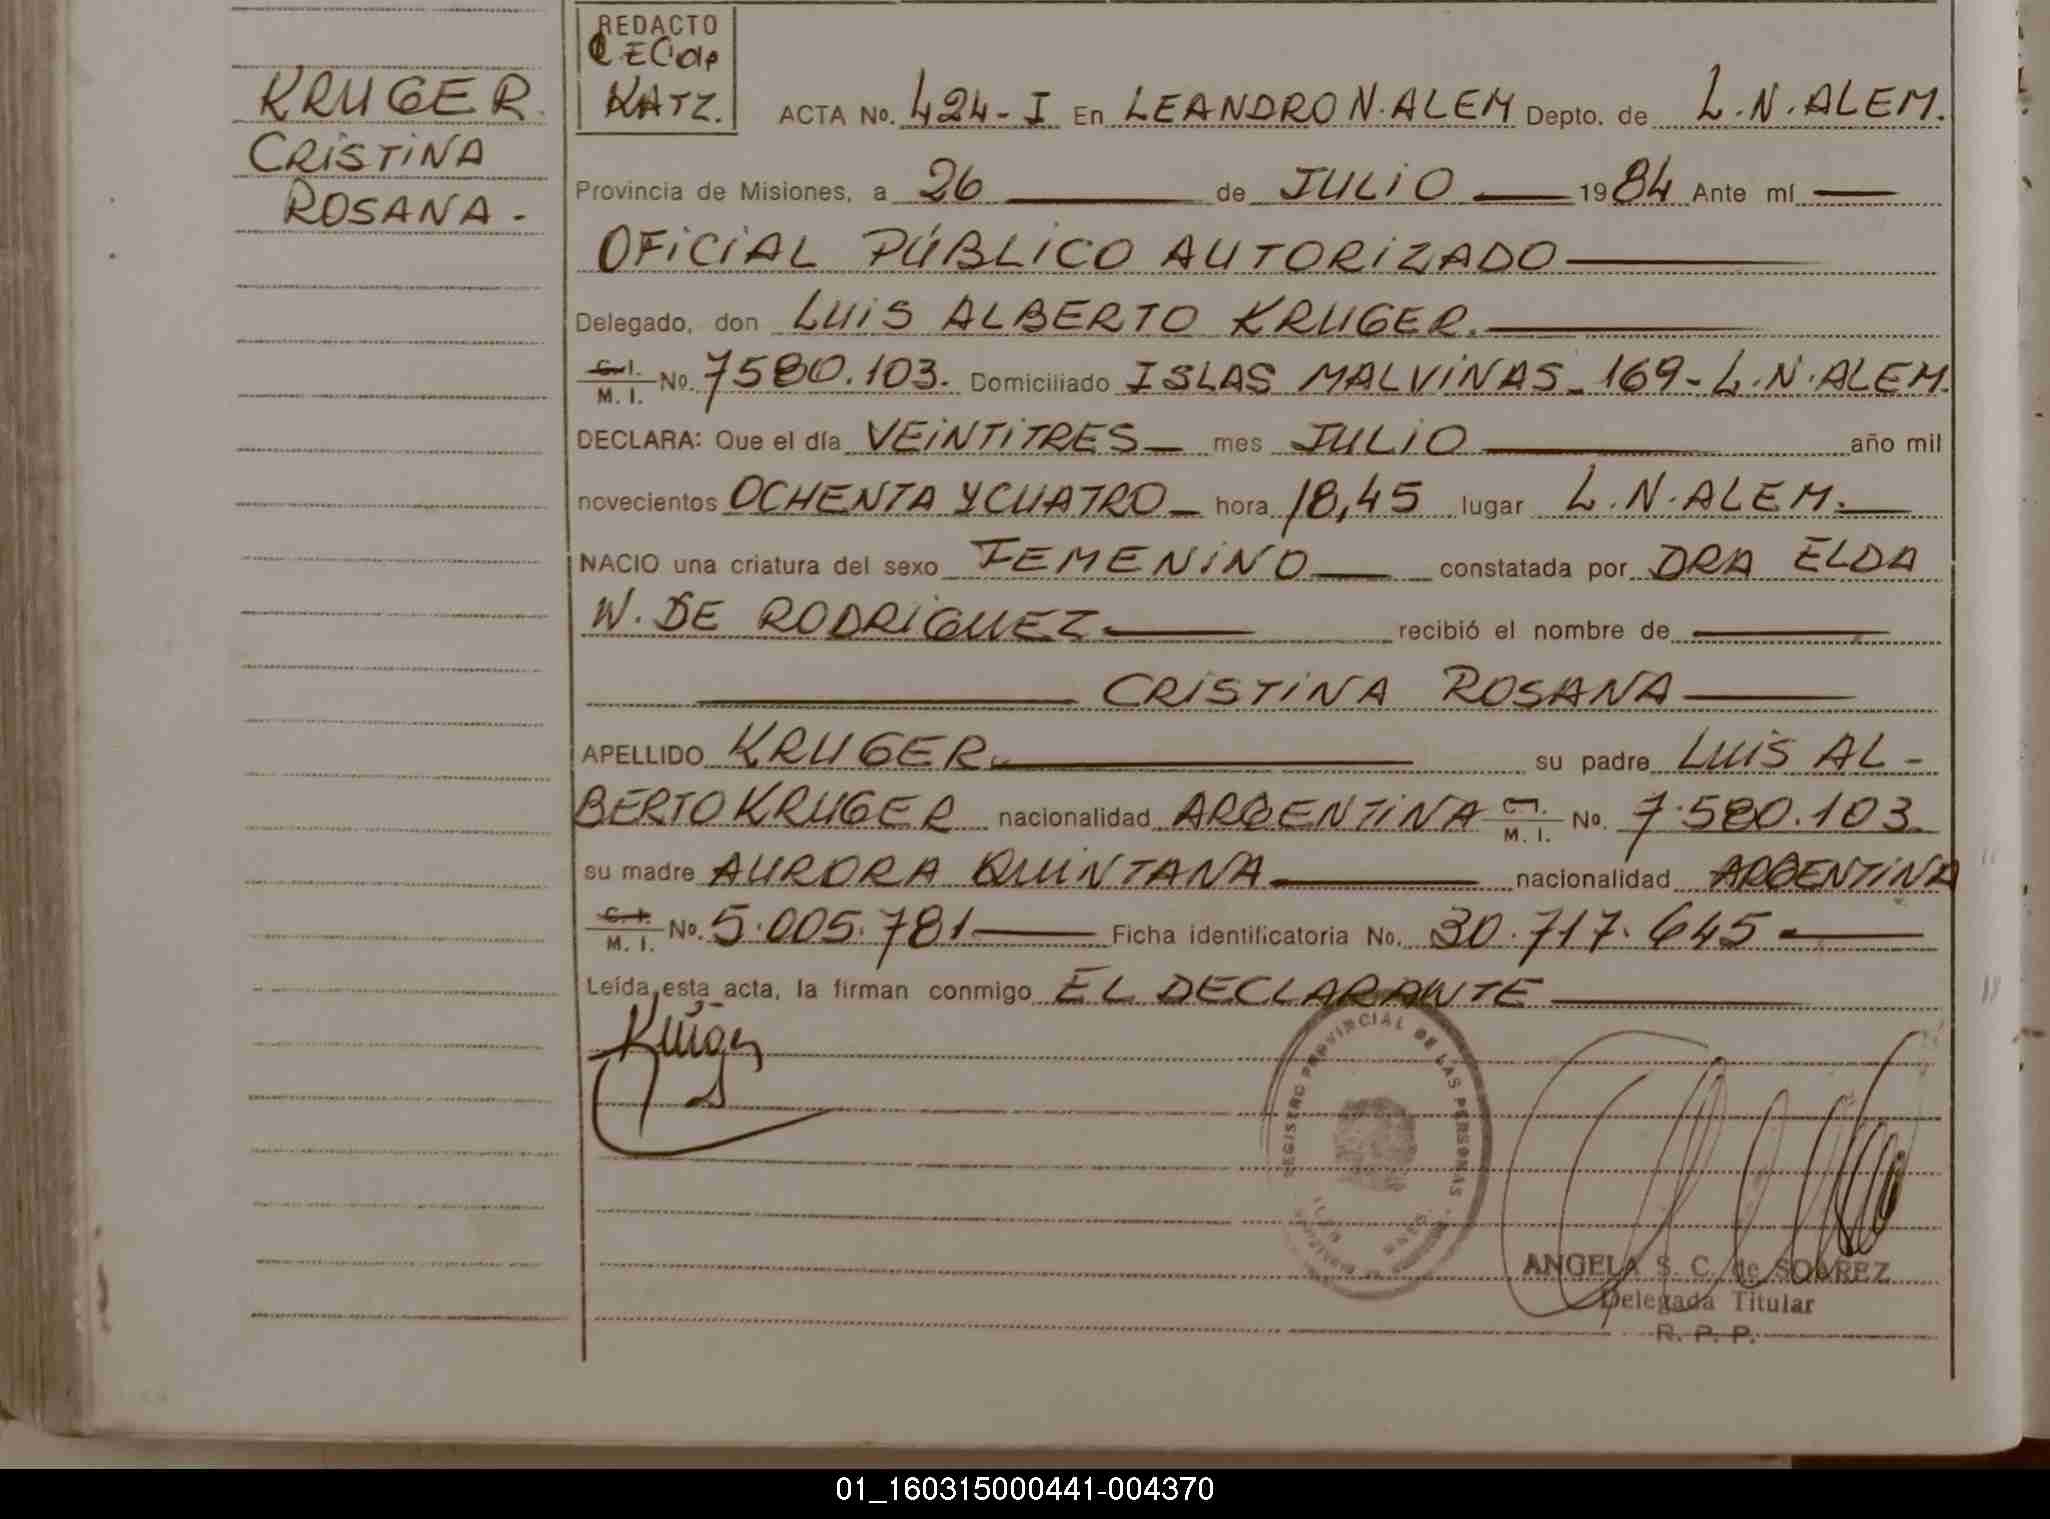 KRUGER
CRISTINA
ROSANA.-
REDACTO
KATZ.
ACTA No. 424-I En LEANDRO N. ALEM Depto. de L.N. ALEM.
Provincia de Misiones, a 26 de JULIO 1984 Ante mí
OFICIAL PÚBLICO AUTORIZADO
Delegado, don LUIS ALBERTO KRUGER.
C.I. M. I. No. 7580.103. Domiciliado ISLAS MALVINAS - 169 - L.N. ALEM.
DECLARA: Que el día VEINTITRES mes JULIO año mil
novecientos OCHENTA Y CUATRO hora 18,45 lugar L.N. ALEM.
NACIO una criatura del sexo FEMENINO constatada por DRA ELDA
W. DE RODRIGUEZ recibió el nombre de
CRISTINA ROSANA
APELLIDO KRUGER su padre LUIS AL-
BERTO KRUGER nacionalidad ARGENTINA C.I. M. I. No. 7.580.103.
su madre AURORA QUINTANA nacionalidad ARGENTINA
C. I. M. I. No. 5.005.781 Ficha identificatoria No. 30.717.645
Leída esta acta, la firman conmigo EL DECLARANTE
REGISTRO PROVINCIAL DE LAS PERSONAS
ANGELA S. C. de SOAREZ
Delegada Titular
R. P. P.
01_160315000441-004370